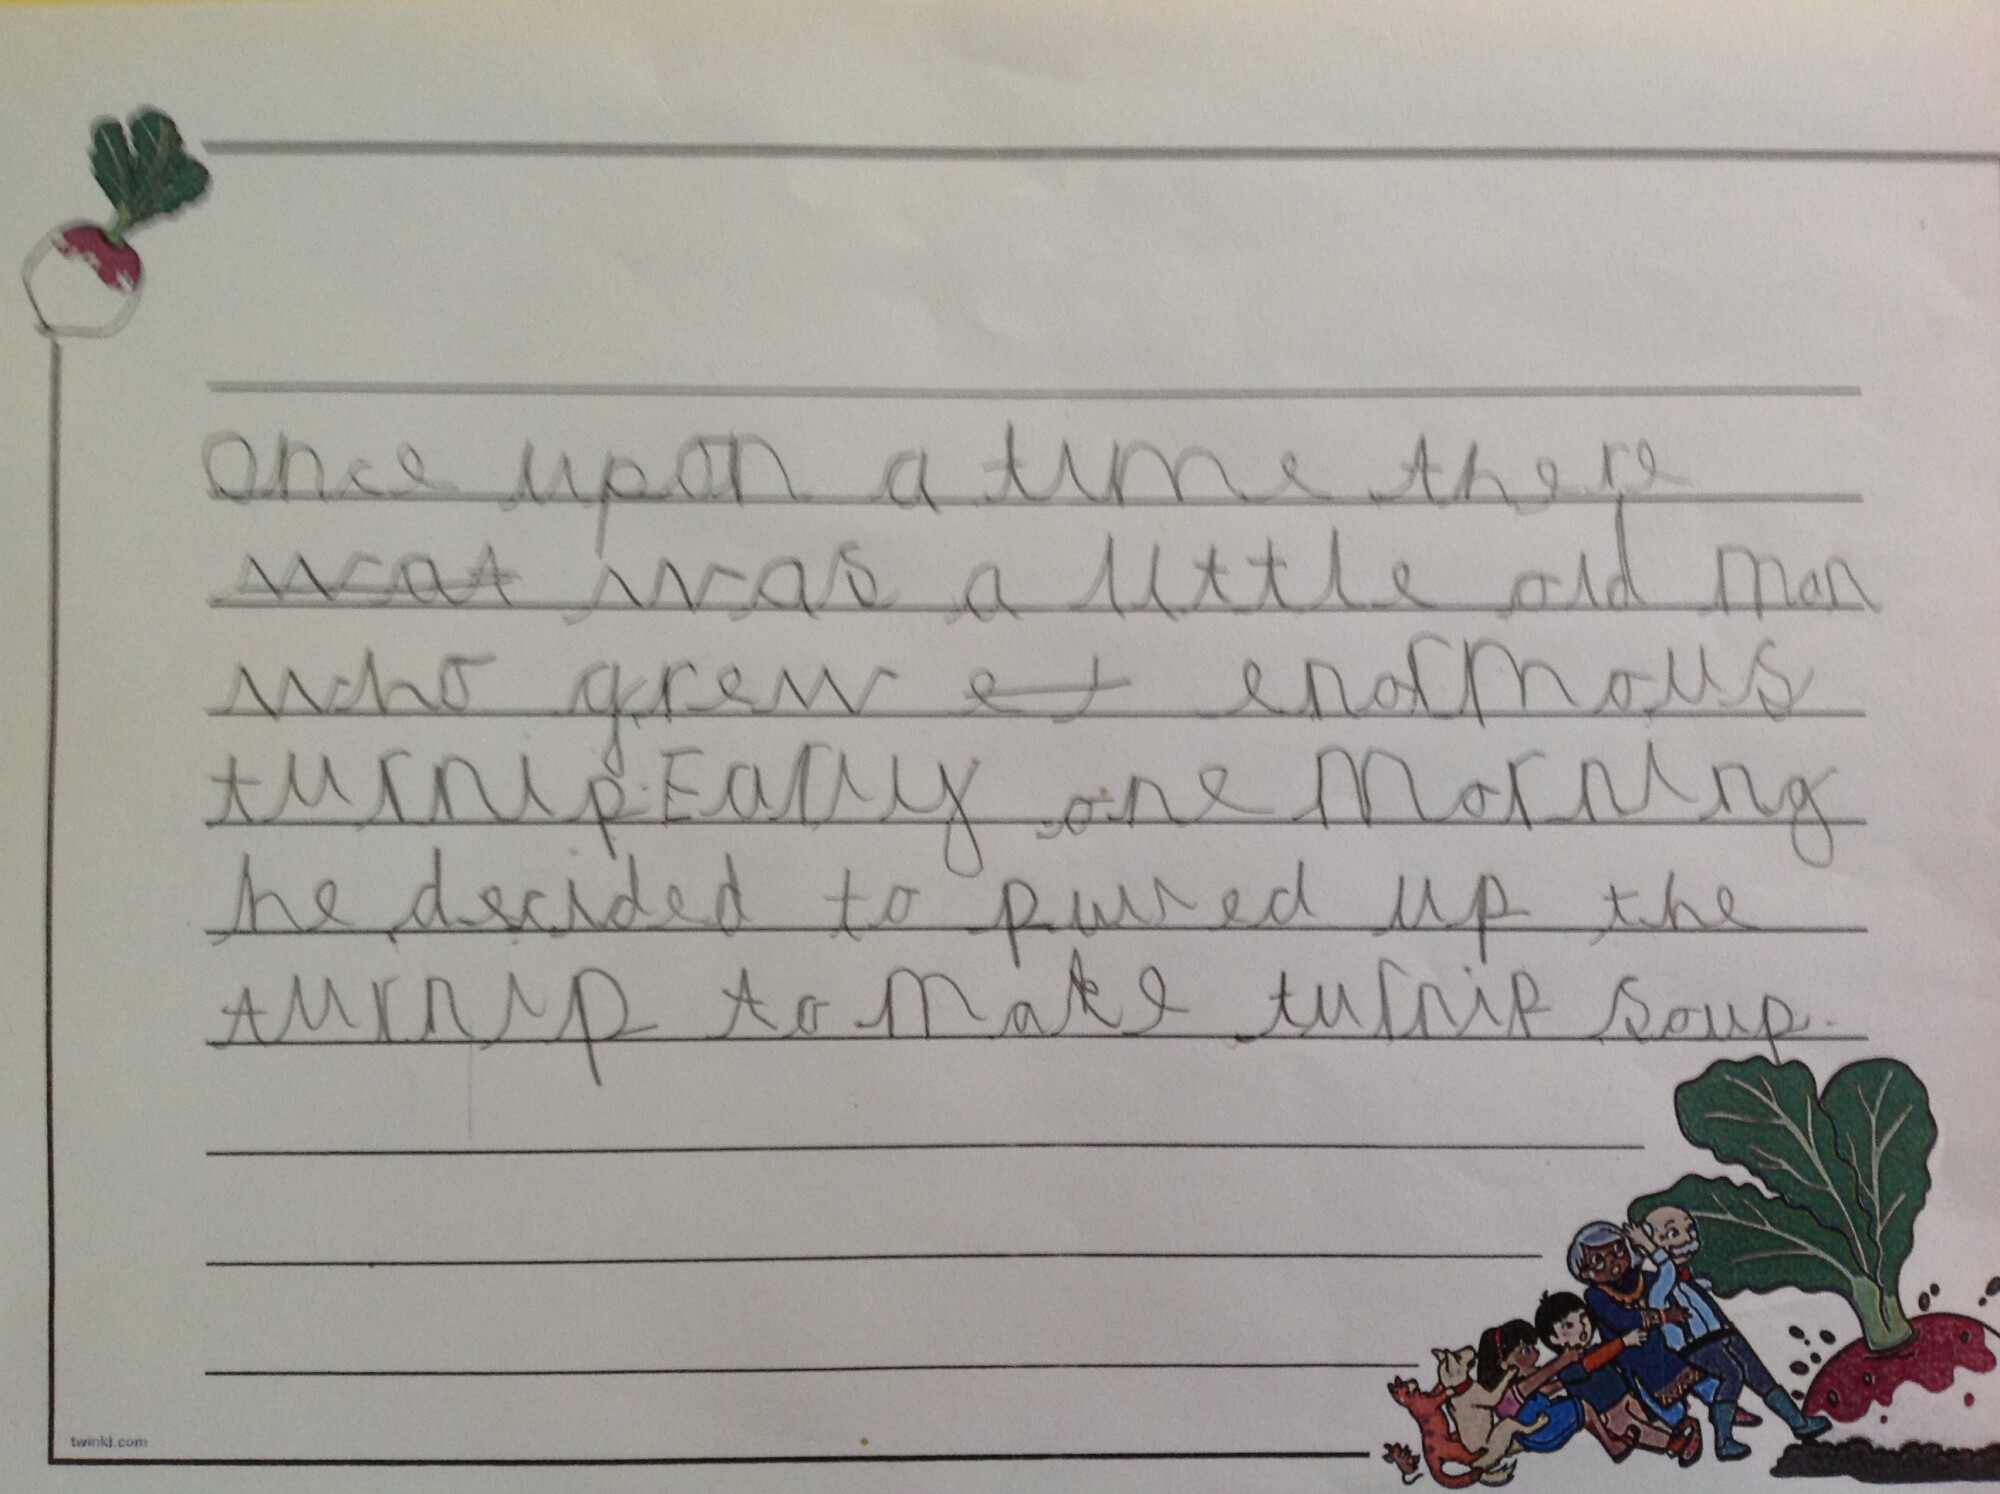 Once upon a time there
wcat was a little old man
who grew et enormous
turnip. Early one Morning
he decided to pulled up the
turnip to make turnip soup.
twinkl.com